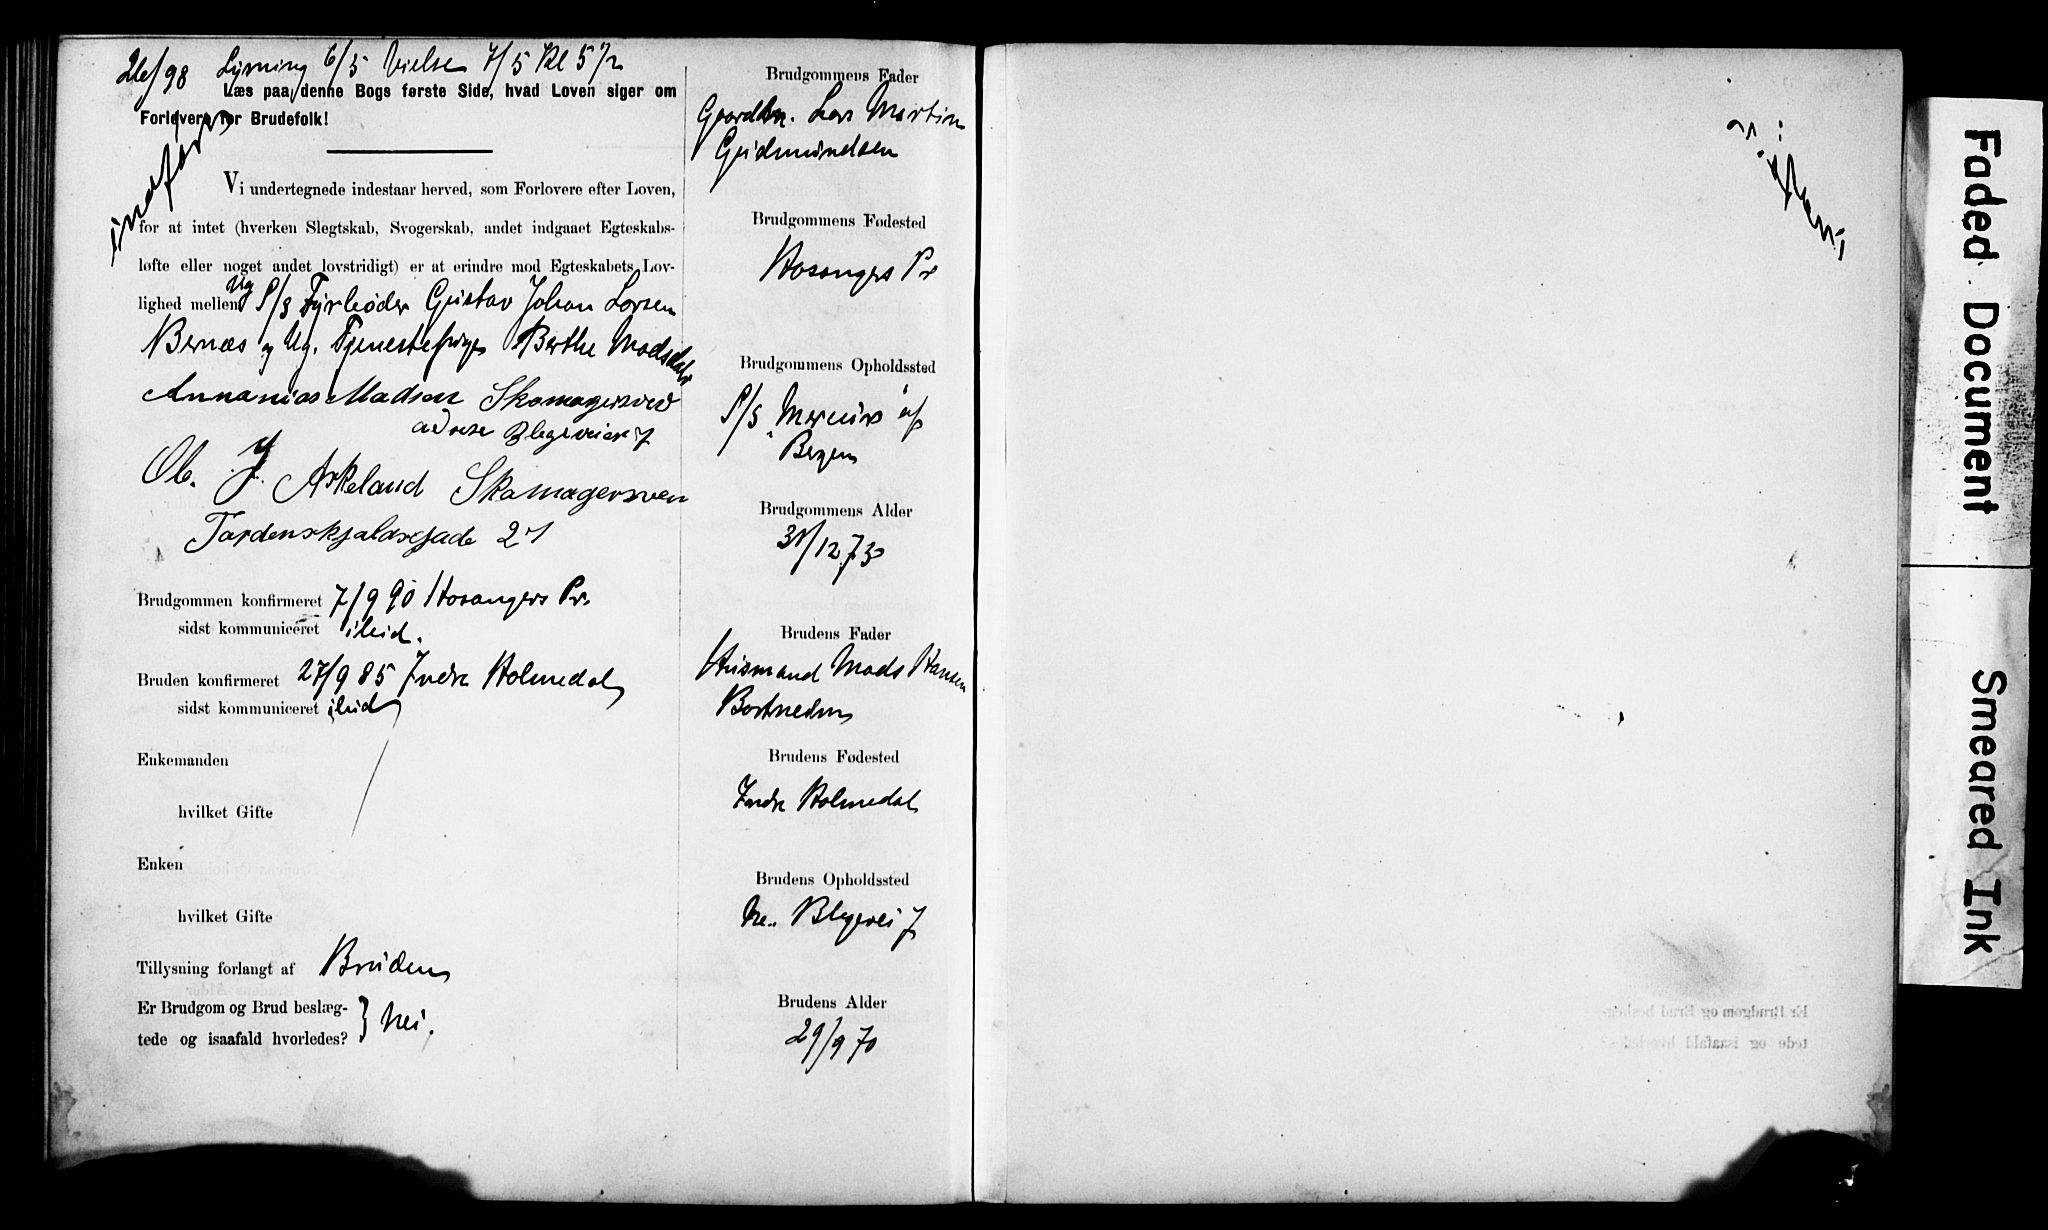 26/98 Lysning 6/5 Vielse 7/5 Kl 5 1/2
Læs paa denne Bogs første Side, hvad Loven siger om
Forlovere for Brudefolk!
indført
Vi undertegnede indestaar herved, som Forlovere efter Loven,
for at intet (hverken Slegtskab, Svogerskab, andet indgaaet Egteskabs-
løfte eller noget andet lovstridigt) er at erindre mod Egteskabets Lov-
lighed mellem Ug S/S Fyrbøder Gustav Johan Larsen
Bernæs og Ug. Tjenestepige Berthe Madsdatr
Annanias Madsen Skomagersvend
adrese Blegeveien 7
Ol. J. Askeland Skomagersven
Tordenskjoldsgade 21
Brudgommen konfirmeret 7/9 90 Hosangers Pr.
sidst kommuniceret ibid.
Bruden konfirmeret 27/9 85 Indre Holmedal
sidst kommuniceret ibid
Enkemanden
hvilket Gifte
Enken
hvilket Gifte
Tillysning forlangt af Bruden
Er Brudgom og Brud beslæg-
tede og isaafald hvorledes? } Nei.
Brudgommens Fader
Gaardbr. Lars Martin
Gudmundsen
Brudgommens Fødested
Hosangers Pr
Brudgommens Opholdssted
S/S „Mercur“ af
Bergen
Brudgommens Alder
31/12 73
Brudens Fader
Husmand Mads Hansen
Bortnedn
Brudens Fødested
Indre Holmedal
Brudens Opholdssted
Blegevei 7
Brudens Alder
29/9 70
Faded Document
Smeared Ink